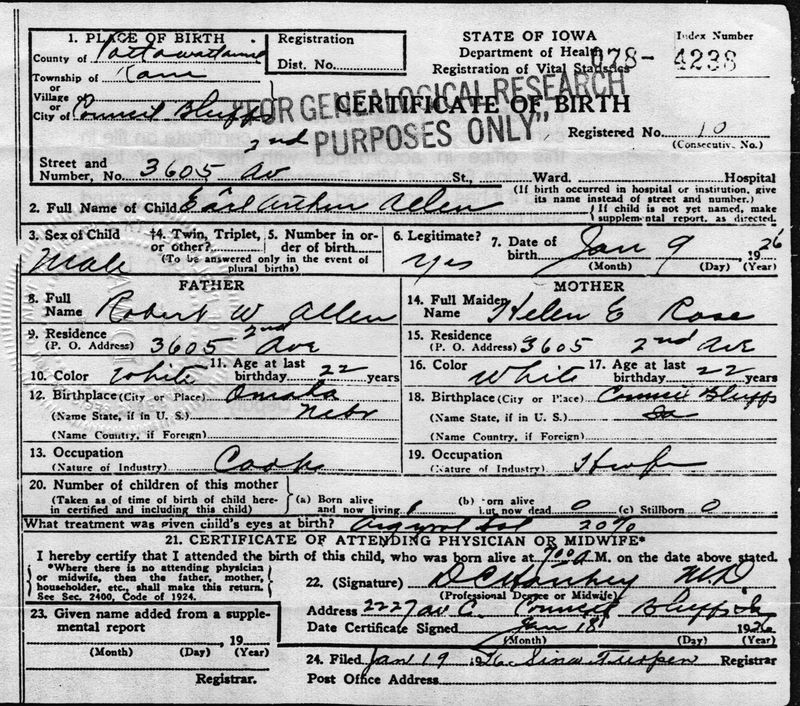 1. PLACE OF BIRTH
County of Pottawattamie
Township of Kane
or
Village of
or
City of Council Bluffs
Street and 2nd
Number, No. 3605 Av St., Ward. Hospital
(If birth occurred in hospital or institution, give
its name instead of street and number.)
Registration
Dist. No.
STATE OF IOWA
Department of Health
Registration of Vital Statistics
CERTIFICATE OF BIRTH
"FOR GENEALOGICAL RESEARCH
PURPOSES ONLY"
Index Number
078-4238
Registered No. 10
(Consecutive No.)
2. Full Name of Child Earl Arthur Allen
If child is not yet named, make
supplemental report, as directed.
3. Sex of Child
Male
†4. Twin, Triplet,
or other?
5. Number in or-
der of birth
(To be answered only in the event of
plural births)
6. Legitimate?
Yes
7. Date of
birth Jan 9 1926
(Month) (Day) (Year)
FATHER
8. Full
Name Robert W Allen
9. Residence 2nd
(P. O. Address) 3605 Ave
10. Color White
11. Age at last
birthday 22 years
12. Birthplace (City or Place) Omaha
(Name State, if in U. S.) Nebr
(Name Country, if Foreign)
13. Occupation
(Nature of Industry)
MOTHER
14. Full Maiden
Name Helen E Rose
15. Residence
(P. O. Address) 3605 2nd Ave
16. Color White
17. Age at last
birthday 22 years
18. Birthplace (City or Place) Council Bluffs
(Name State, if in U. S.) Ia
(Name Country, if Foreign)
19. Occupation
(Nature of Industry) Hwf
20. Number of children of this mother
(Taken as of time of birth of child here-
in certified and including this child)
(a) Born alive
and now living 1
(b) Born alive
but now dead 0
(c) Stillborn 0
What treatment was given child's eyes at birth? Argyrol Sol 20%
21. CERTIFICATE OF ATTENDING PHYSICIAN OR MIDWIFE*
I hereby certify that I attended the birth of this child, who was born alive at 7:00 A M. on the date above stated.
*Where there is no attending physician
or midwife, then the father, mother,
householder, etc., shall make this return.
See Sec. 2400, Code of 1924.
22. (Signature) D C M.D.
(Professional Degree or Midwife)
Address 2227 Av C. Council Bluffs Ia
Date Certificate Signed Jan 18 1926
(Month) (Day) (Year)
23. Given name added from a supple-
mental report
, 19
(Month) (Day) (Year)
Registrar.
24. Filed Jan 19 1926 Registrar
Post Office Address